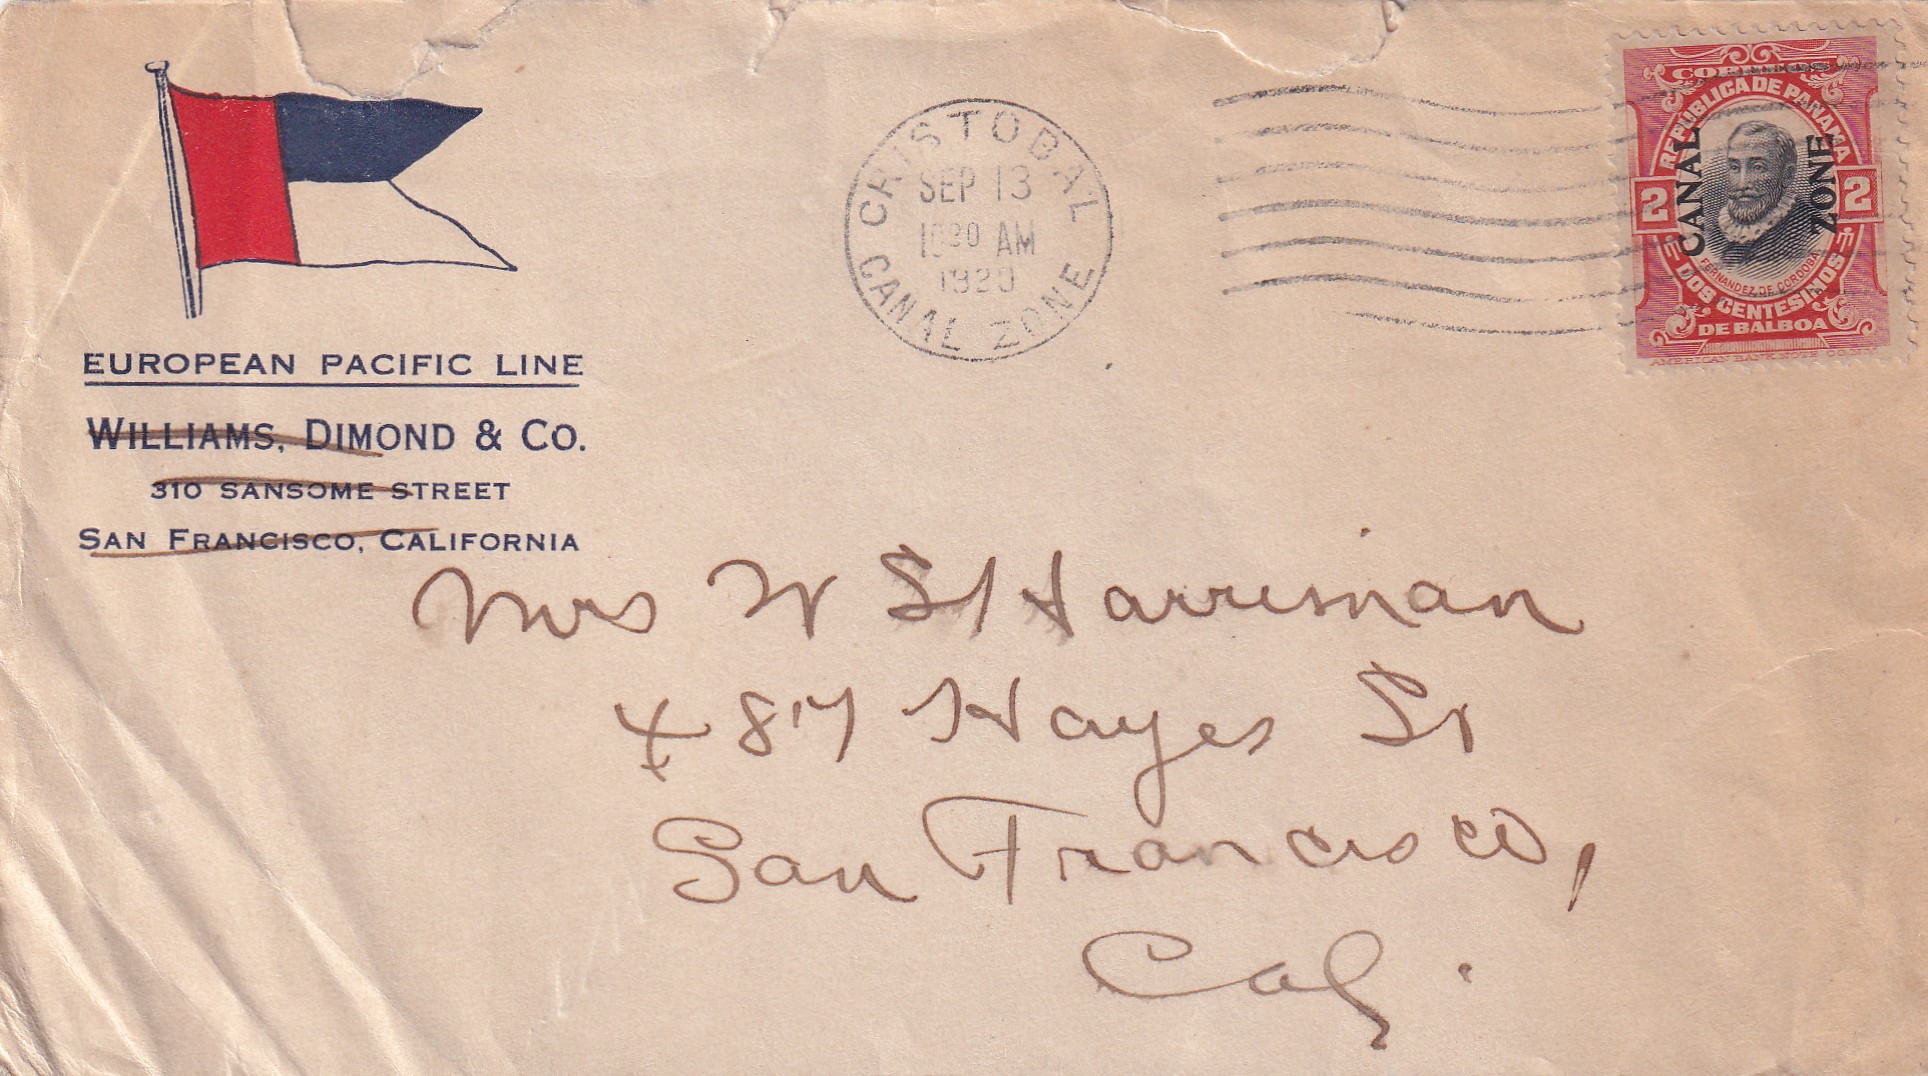 EUROPEAN PACIFIC LINE
WILLIAMS, DIMOND & CO.
310 SANSOME STREET
SAN FRANCISCO, CALIFORNIA
CRISTOBAL
SEP 13
AM
1920
CANAL ZONE
CORREOS
REPUBLICA DE PANAMA
CANAL ZONE
2 2
FERNANDEZ DE CORDOBA
DOS CENTESIMOS
DE BALBOA
AMERICAN BANK NOTE CO. N.Y.
Mrs W S Harriman
487 Hayes St
San Francisco,
Cal.